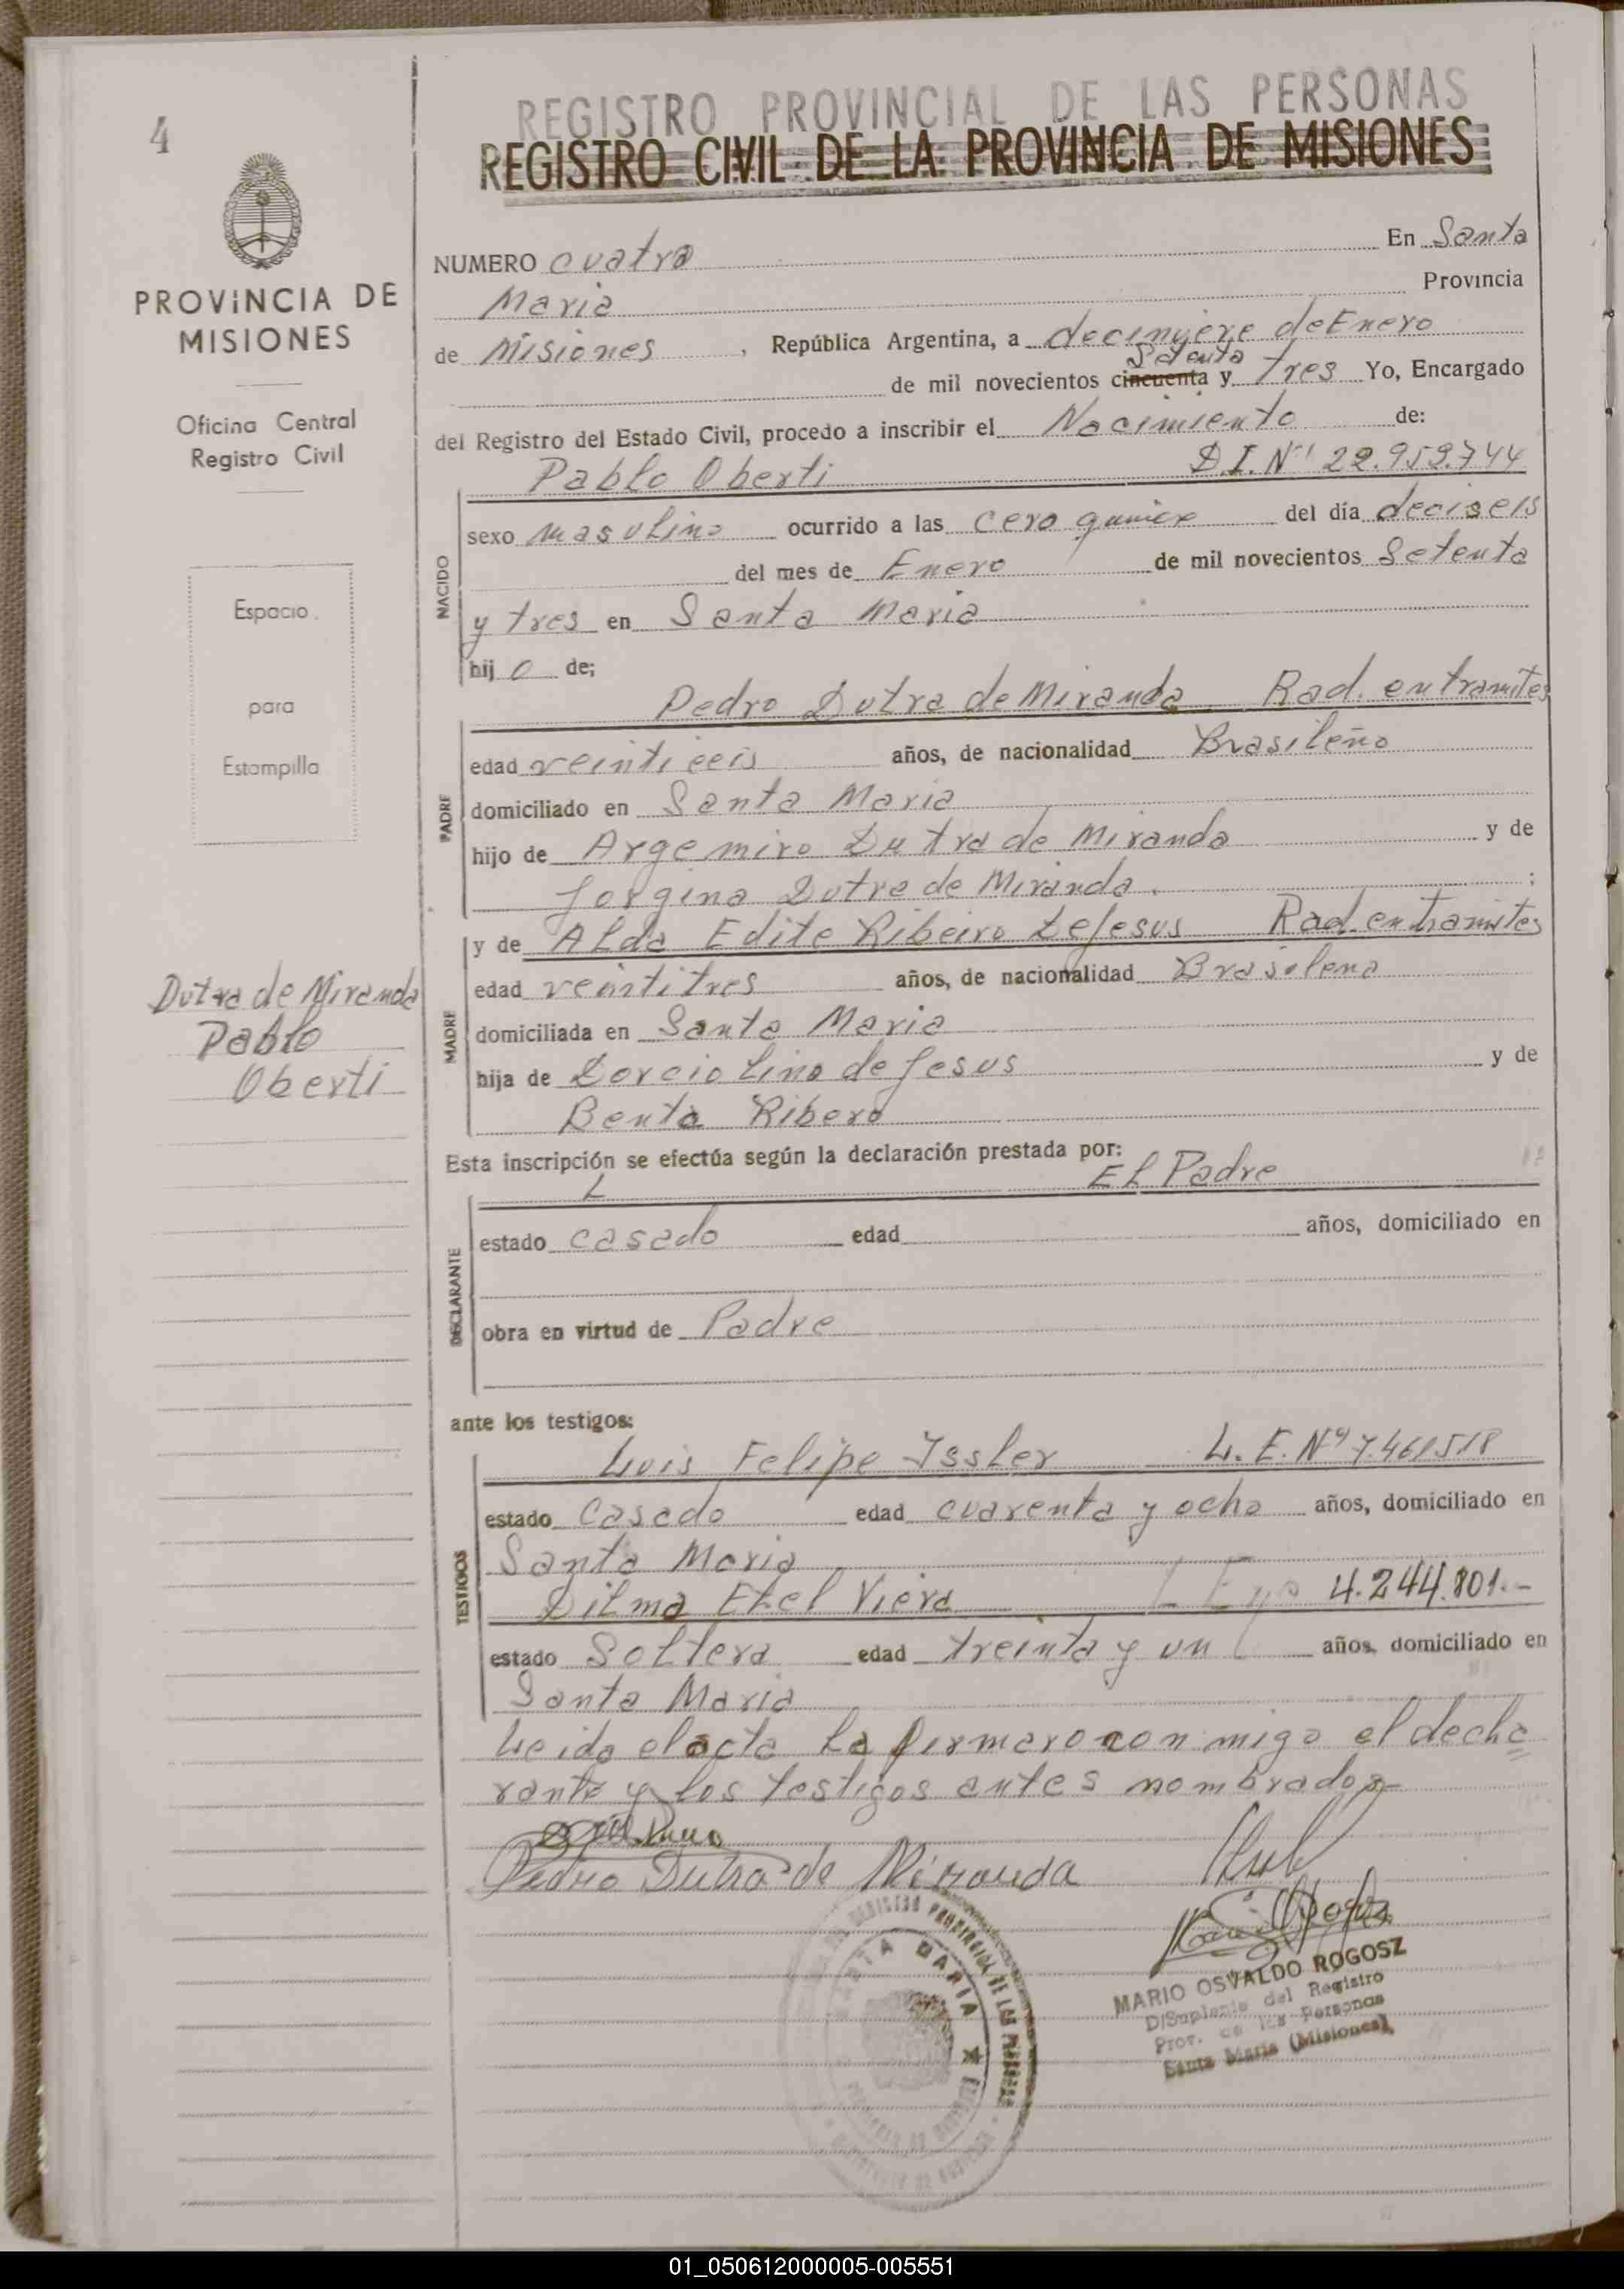 4
PROVINCIA DE
MISIONES
Oficina Central
Registro Civil
Espacio
para
Estampilla
Dutra de Miranda
Pablo
Oberti
REGISTRO PROVINCIAL DE LAS PERSONAS
REGISTRO CIVIL DE LA PROVINCIA DE MISIONES
NUMERO cuatro En Santa
Maria Provincia
de Misiones, República Argentina, a decinuere de Enero
Setenta
de mil novecientos cincuenta y tres Yo, Encargado
del Registro del Estado Civil, procedo a inscribir el Nacimiento de:
Pablo Oberti D.I. Nº 22.959.744
NACIDO
sexo masculino ocurrido a las cero quince del día deciseis
del mes de Enero de mil novecientos Setenta
y tres en Santa Maria
hijo de;
Pedro Dutra de Miranda Rad. en tramites
PADRE
edad veintiseis años, de nacionalidad Brasileño
domiciliado en Santa Maria
hijo de Argemiro Dutra de Miranda y de
Jorgina Dutra de Miranda. ;
y de Alda Edite Ribeiro DeJesus Rad. en tramites
MADRE
edad veintitres años, de nacionalidad Brasilena
domiciliada en Santa Maria
hija de Dorcio Lino de Jesus y de
Benta Ribero
Esta inscripción se efectúa según la declaración prestada por:
El Padre
DECLARANTE
estado casado edad años, domiciliado en
obra en virtud de Padre
ante los testigos:
Luis Felipe Issler L.E. Nº 7.461518
TESTIGOS
estado Casado edad cuarenta y ocho años, domiciliado en
Santa Maria
Dilma Etel Viera L E nº 4.244.801.-
estado Soltera edad treinta y un años, domiciliado en
Santa Maria
Leido el acta la firmaro con migo el decla
rante y los testigos antes nombrados-
Pedro Dutra de Miranda
SANTA MARIA
MARIO OSVALDO ROGOSZ
D/Suplente del Registro
Prov. de las Personas
Santa Maria (Misiones)
01_050612000005-005551